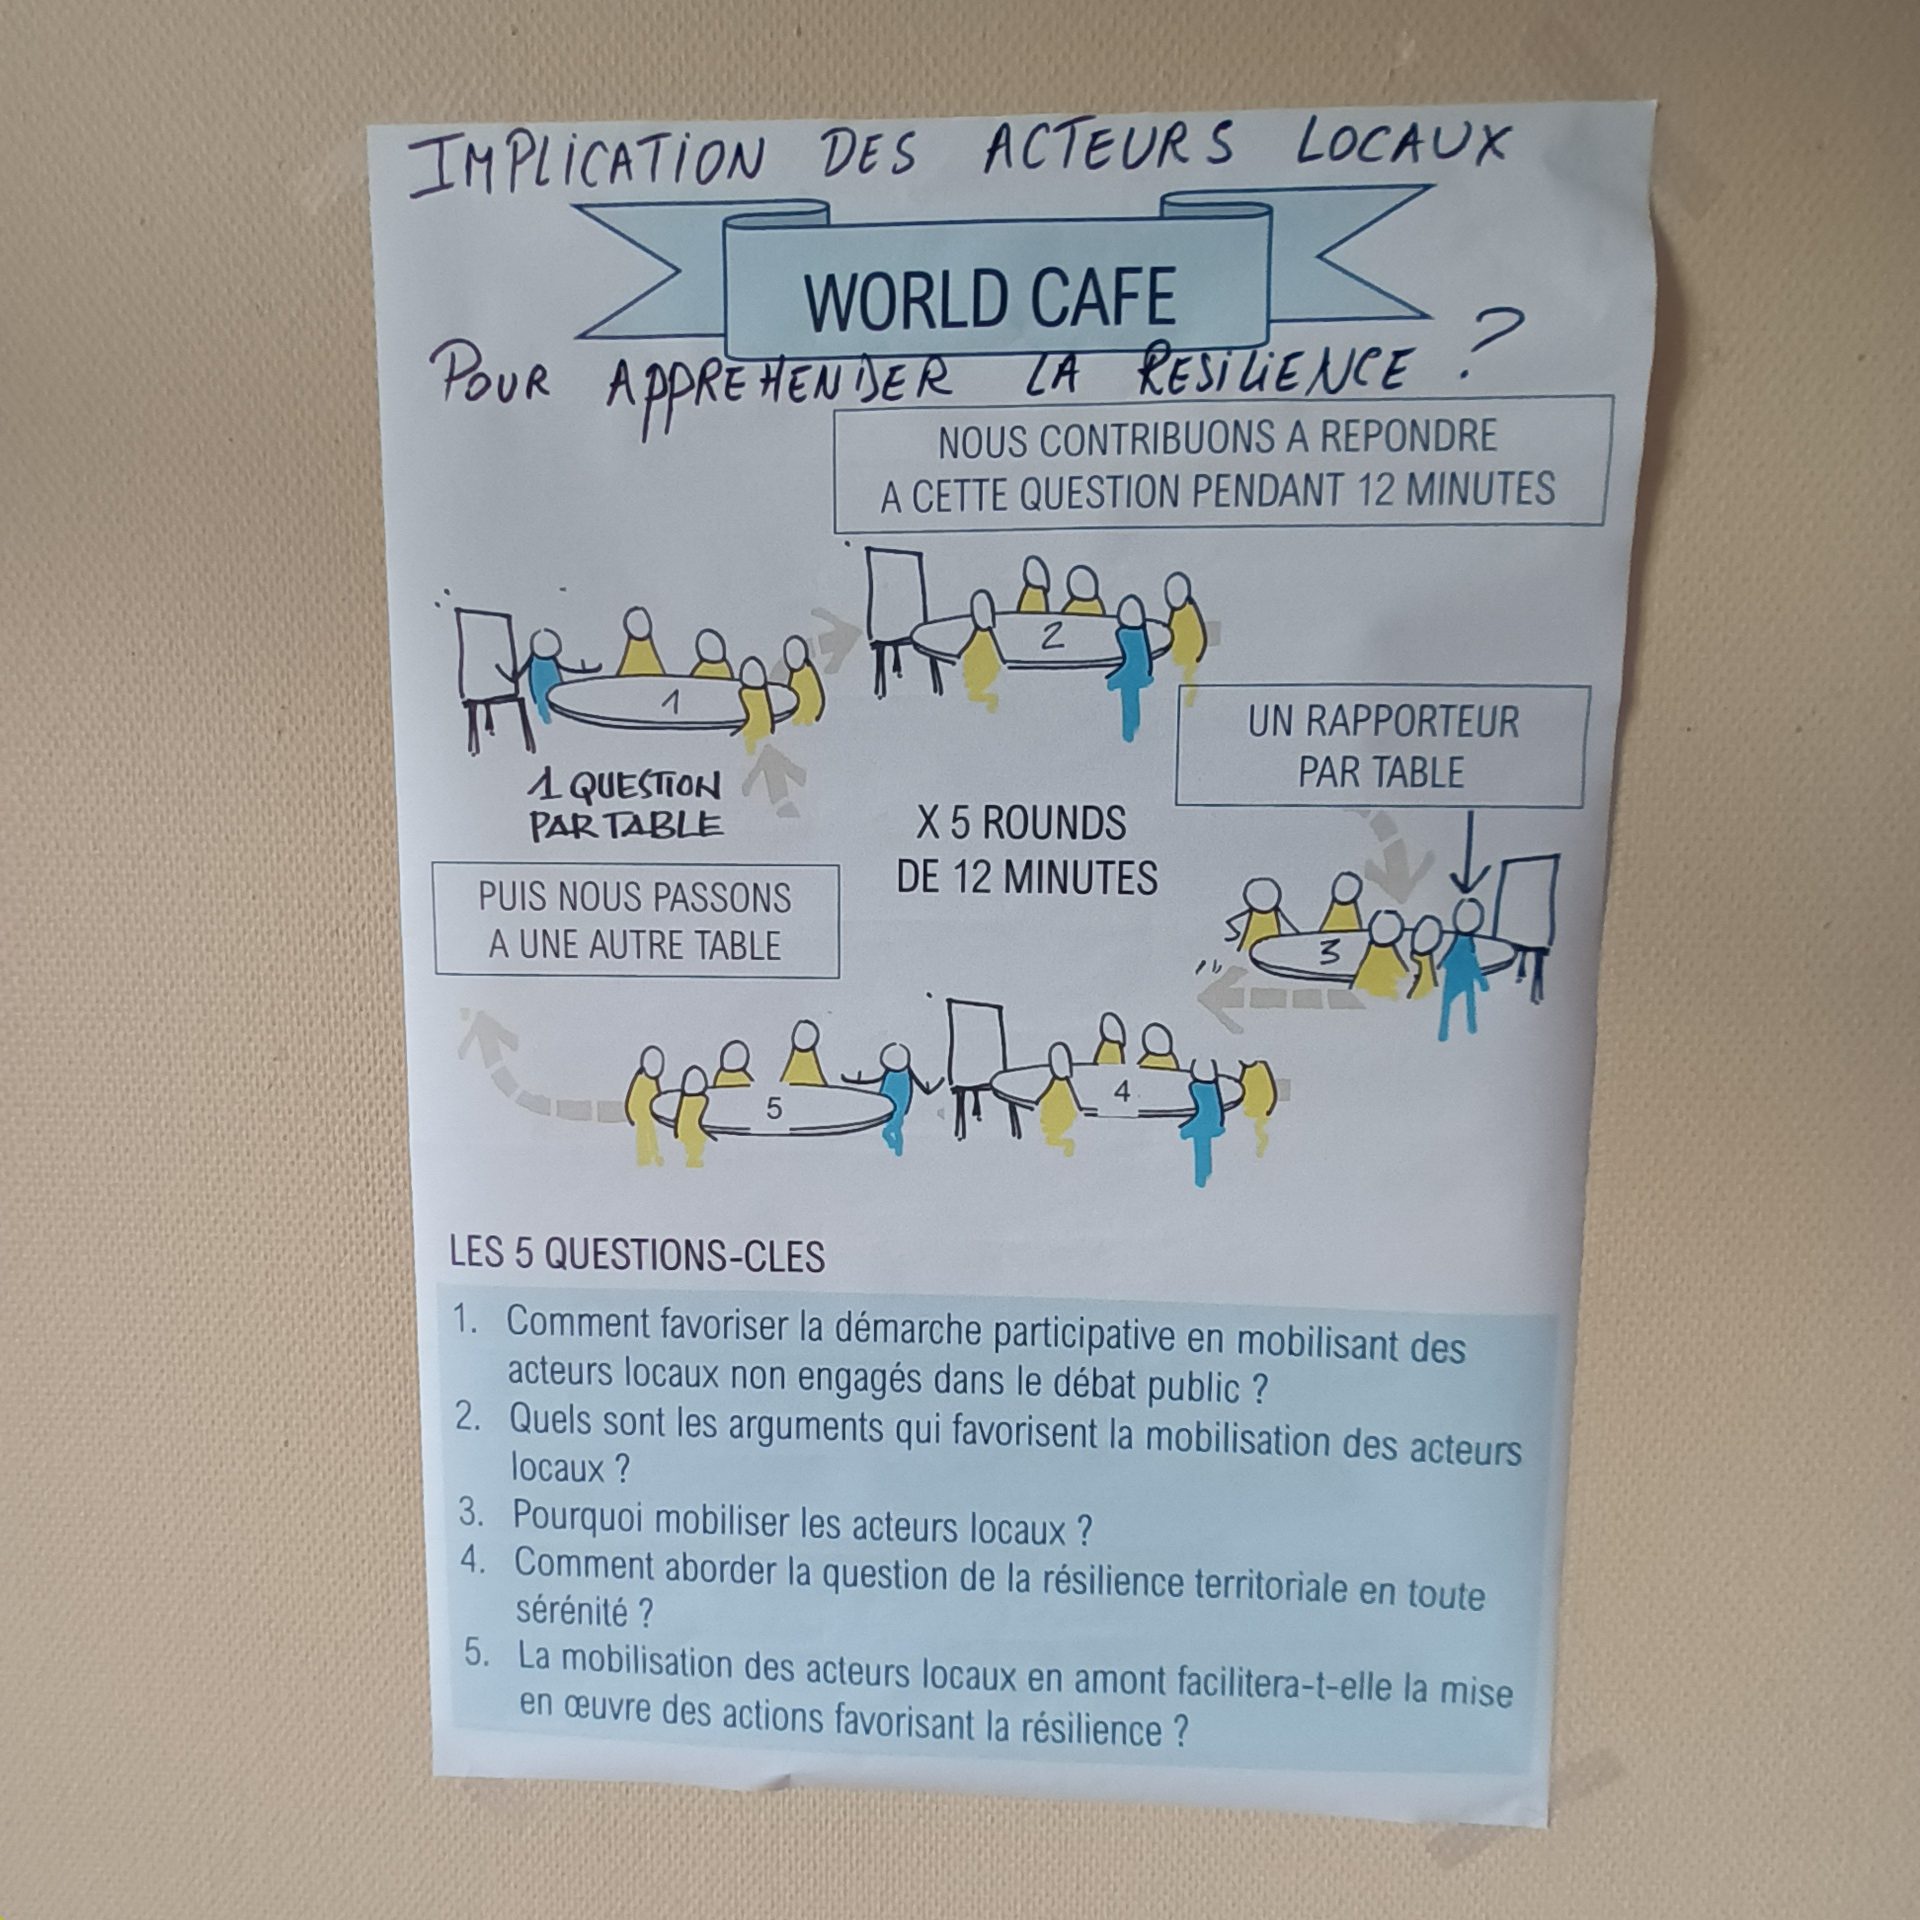 IMPLICATION DES ACTEURS LOCAUX
WORLD CAFE
POUR APPREHENDER LA RESILIENCE ?
NOUS CONTRIBUONS A REPONDRE
A CETTE QUESTION PENDANT 12 MINUTES
1
2
1 QUESTION
PAR TABLE
UN RAPPORTEUR
PAR TABLE
X 5 ROUNDS
DE 12 MINUTES
PUIS NOUS PASSONS
A UNE AUTRE TABLE
3
5
4
LES 5 QUESTIONS-CLES
1. Comment favoriser la démarche participative en mobilisant des
acteurs locaux non engagés dans le débat public ?
2. Quels sont les arguments qui favorisent la mobilisation des acteurs
locaux ?
3. Pourquoi mobiliser les acteurs locaux ?
4. Comment aborder la question de la résilience territoriale en toute
sérénité ?
5. La mobilisation des acteurs locaux en amont facilitera-t-elle la mise
en œuvre des actions favorisant la résilience ?